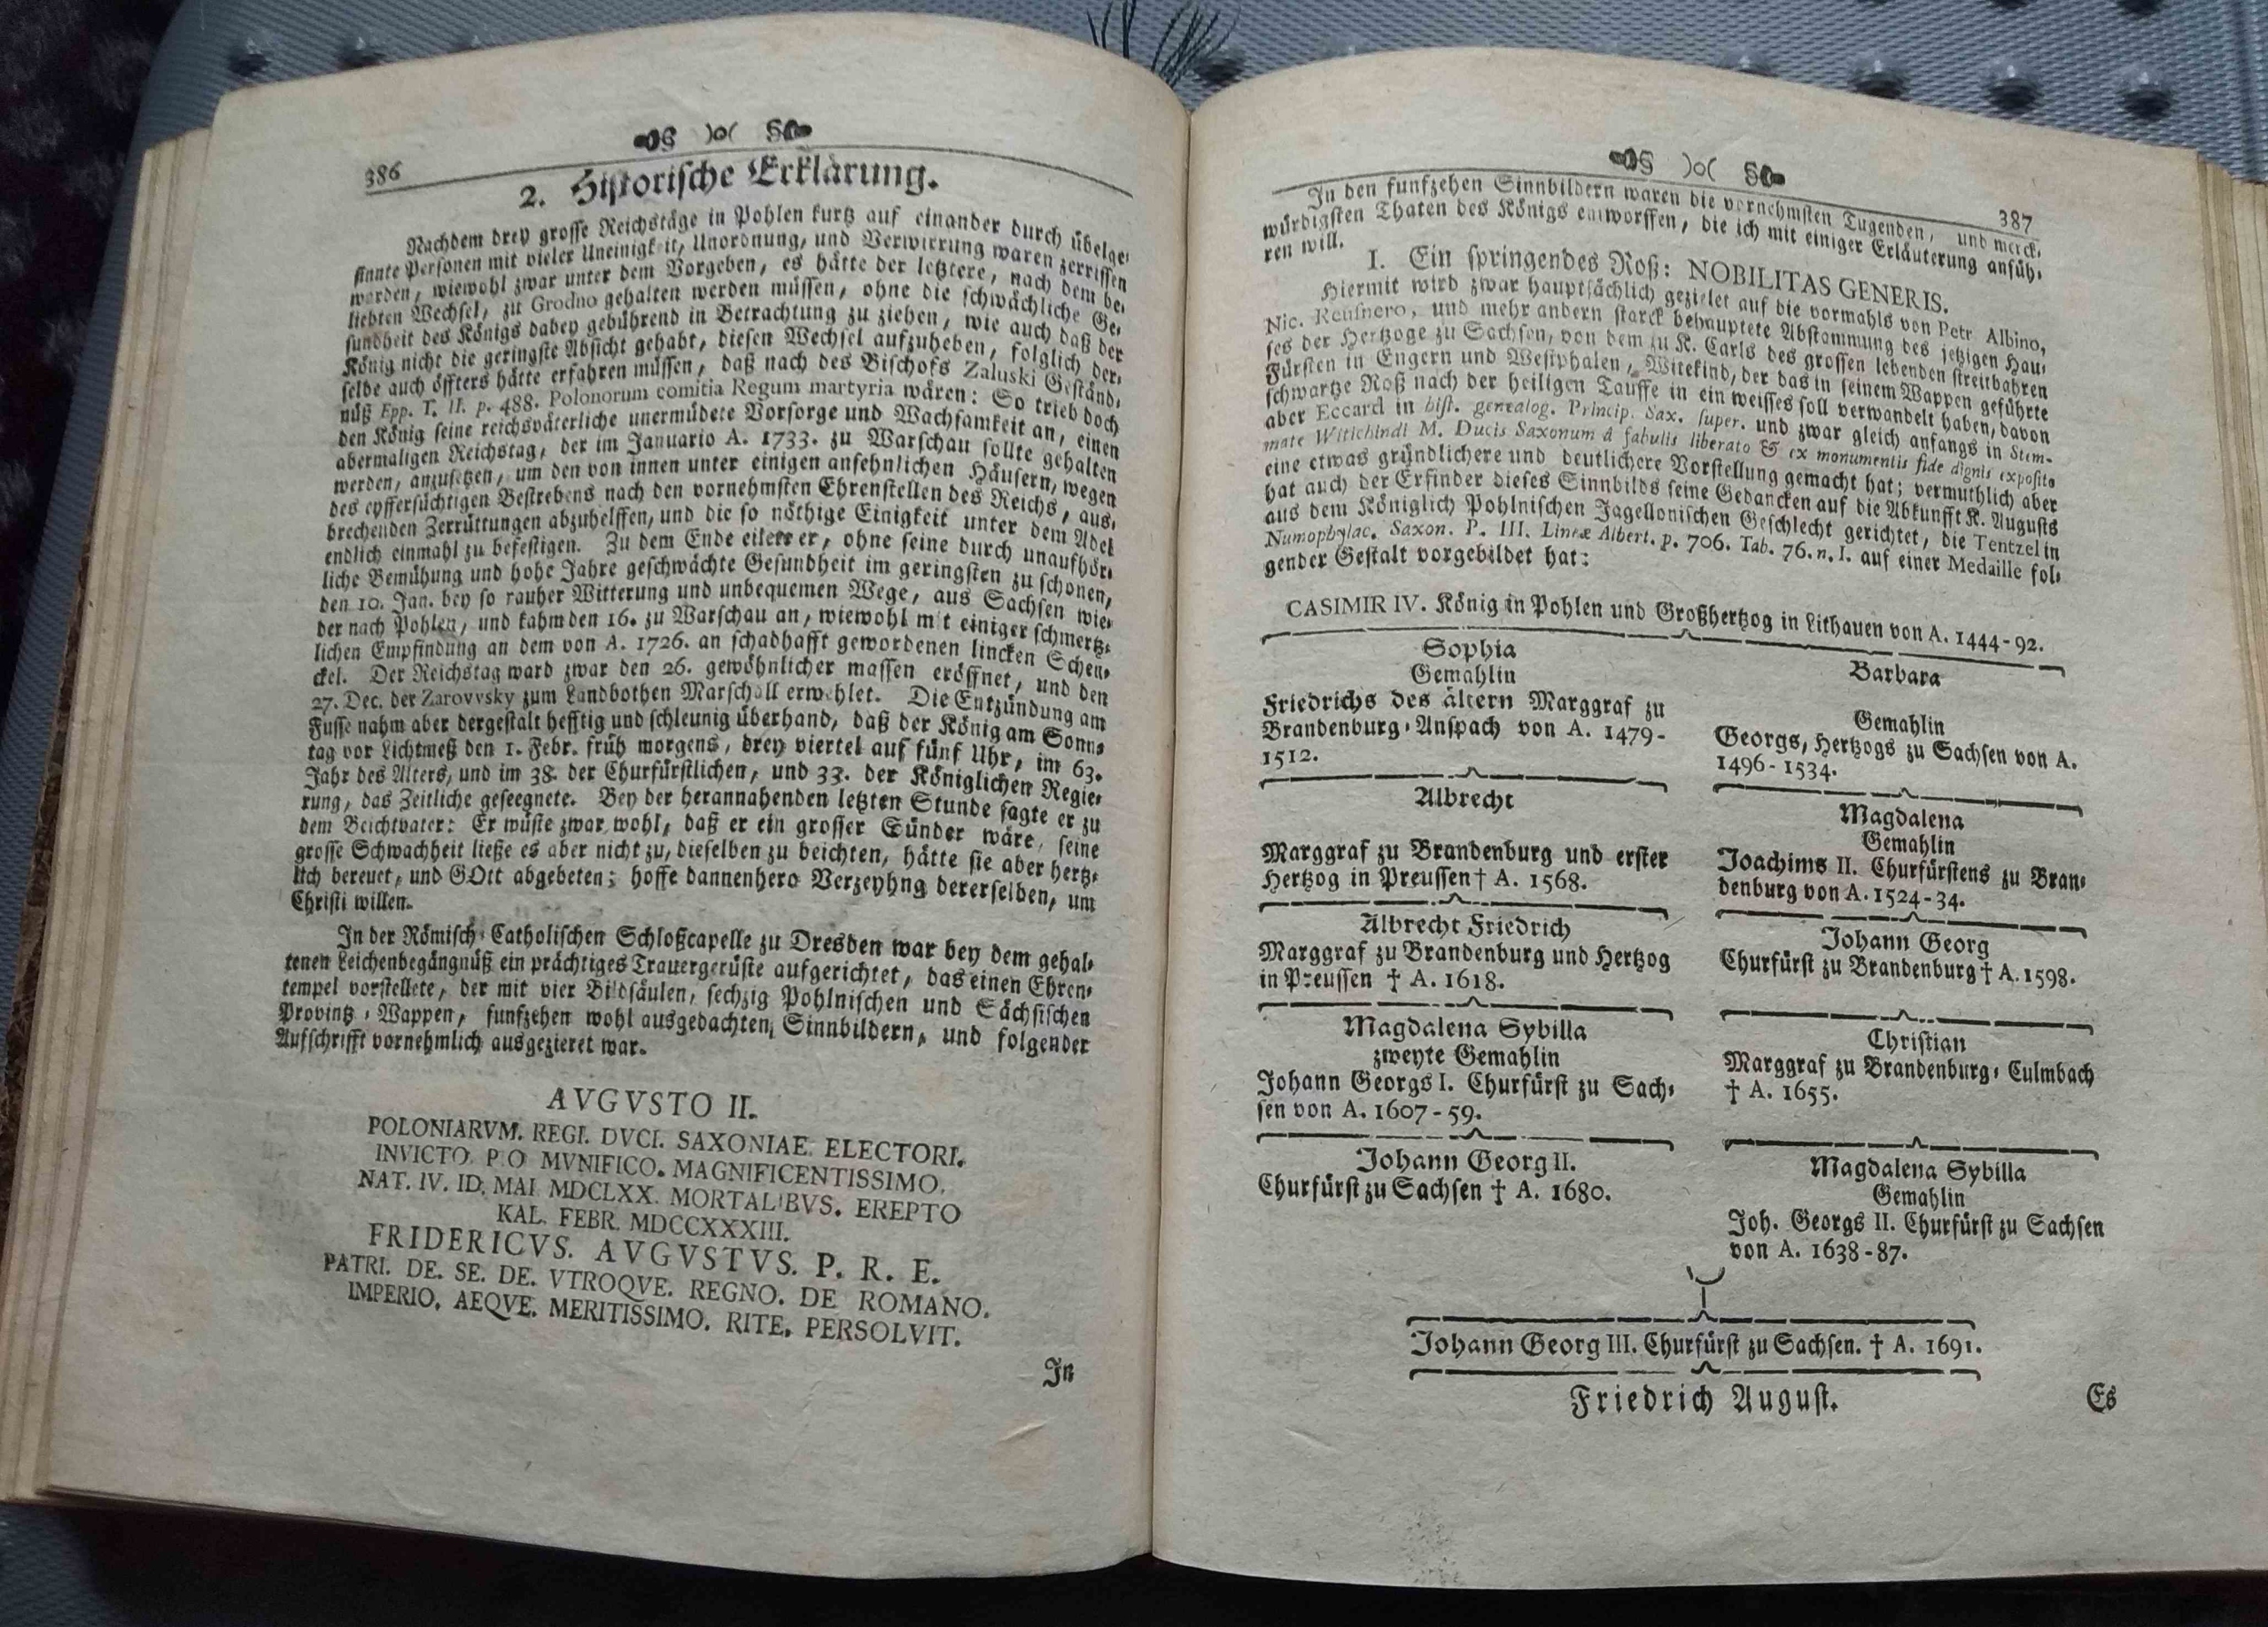 386
2. Historische Erklärung.
Nachdem drey grosse Reichstäge in Pohlen kurtz auf einander durch übelge-
sinnte Personen mit vieler Uneinigkeit, Unordnung, und Verwirrung waren zerrissen
worden, wiewohl zwar unter dem Vorgeben, es hätte der letztere, nach dem be-
liebten Wechsel, zu Grodno gehalten werden müssen, ohne die schwächliche Ge-
sundheit des Königs dabey gebührend in Betrachtung zu ziehen, wie auch daß der
König nicht die geringste Absicht gehabt, diesen Wechsel aufzuheben, folglich der-
selbe auch öffters hätte erfahren müssen, daß nach des Bischofs Zaluski Geständ-
nüß Epp. T. II. p. 488. Polonorum comitia Regum martyria wären: So trieb doch
den König seine reichsväterliche unermüdete Vorsorge und Wachsamkeit an, einen
abermaligen Reichstag, der im Januario A. 1733. zu Warschau sollte gehalten
werden, anzusetzen, um den von innen unter einigen ansehnlichen Häusern, wegen
des eyffersüchtigen Bestrebens nach den vornehmsten Ehrenstellen des Reichs, aus-
brechenden Zerrüttungen abzuhelffen, und die so nöthige Einigkeit unter dem Adel
endlich einmahl zu befestigen. Zu dem Ende eilete er, ohne seine durch unaufhör-
liche Bemühung und hohe Jahre geschwächte Gesundheit im geringsten zu schonen,
den 10. Jan. bey so rauher Witterung und unbequemen Wege, aus Sachsen wie-
der nach Pohlen, und kahm den 16. zu Warschau an, wiewohl mit einiger schmertz-
lichen Empfindung an dem von A. 1726. an schadhafft gewordenen lincken Schen-
ckel. Der Reichstag ward zwar den 26. gewöhnlicher massen eröffnet, und den
27. Dec. der Zarovvsky zum Landbothen Marschall erwehlet. Die Entzündung am
Fusse nahm aber dergestalt hefftig und schleunig überhand, daß der König am Sonn-
tag vor Lichtmeß den 1. Febr. früh morgens, drey viertel auf fünf Uhr, im 63.
Jahr des Alters, und im 38. der Churfürstlichen, und 33. der Königlichen Regie-
rung, das Zeitliche geseegnete. Bey der herannahenden letzten Stunde sagte er zu
dem Beichtvater: Er wüste zwar wohl, daß er ein grosser Sünder wäre, seine
grosse Schwachheit ließe es aber nicht zu, dieselben zu beichten, hätte sie aber hertz-
lich bereuet, und GOtt abgebeten; hoffe dannenhero Verzeyhng dererselben, um
Christi willen.
In der Römisch-Catholischen Schloßcapelle zu Dresden war bey dem gehal-
tenen Leichenbegängnüß ein prächtiges Trauergerüste aufgerichtet, das einen Ehren-
tempel vorstellete, der mit vier Bildsäulen, sechzig Pohlnischen und Sächsischen
Provintz-Wappen, funfzehen wohl ausgedachten Sinnbildern, und folgender
Aufschrifft vornehmlich ausgezieret war.
AVGVSTO II.
POLONIARVM. REGI. DVCI. SAXONIAE. ELECTORI.
INVICTO. P.O MVNIFICO. MAGNIFICENTISSIMO.
NAT. IV. ID. MAI. MDCLXX. MORTALIBVS. EREPTO
KAL. FEBR. MDCCXXXIII.
FRIDERICVS. AVGVSTVS. P. R. E.
PATRI. DE. SE. DE. VTROQVE. REGNO. DE ROMANO.
IMPERIO. AEQVE. MERITISSIMO. RITE. PERSOLVIT.
In
387
In den funfzehen Sinnbildern waren die vornehmsten Tugenden, und merck-
würdigsten Thaten des Königs entworffen, die ich mit einiger Erläuterung anfüh-
ren will.
I. Ein springendes Roß: NOBILITAS GENERIS.
Hiermit wird zwar hauptsächlich gezielet auf die vormahls von Petr. Albino,
Nic. Reusnero, und mehr andern starck behauptete Abstammung des jetzigen Hau-
ses der Hertzoge zu Sachsen, von dem zu K. Carls des grossen lebenden streitbahren
Fürsten in Engern und Westphalen, Witekind, der das in seinem Wappen geführte
schwartze Roß nach der heiligen Tauffe in ein weisses soll verwandelt haben, davon
aber Eccard in hist. genealog. Princip. Sax. super. und zwar gleich anfangs in Stem-
mate Witichindi M. Ducis Saxonum à fabulis liberato & ex monumentis fide dignis exposito
eine etwas gründlichere und deutlichere Vorstellung gemacht hat; vermuthlich aber
hat auch der Erfinder dieses Sinnbilds seine Gedancken auf die Abkunfft K. Augusts
aus dem Königlich Pohlnischen Jagellonischen Geschlecht gerichtet, die Tentzel in
Numophylac. Saxon. P. III. Lineæ Albert. p. 706. Tab. 76. n. I. auf einer Medaille fol-
gender Gestalt vorgebildet hat:
CASIMIR IV. König in Pohlen und Großhertzog in Lithauen von A. 1444-92.
Sophia
Gemahlin
Friedrichs des ältern Marggraf zu
Brandenburg-Anspach von A. 1479-
1512.
Albrecht
Marggraf zu Brandenburg und erster
Hertzog in Preussen † A. 1568.
Albrecht Friedrich
Marggraf zu Brandenburg und Hertzog
in Preussen † A. 1618.
Magdalena Sybilla
zweyte Gemahlin
Johann Georgs I. Churfürst zu Sach-
sen von A. 1607-59.
Johann Georg II.
Churfürst zu Sachsen † A. 1680.
Barbara
Gemahlin
Georgs, Hertzogs zu Sachsen von A.
1496-1534.
Magdalena
Gemahlin
Joachims II. Churfürstens zu Bran-
denburg von A. 1524-34.
Johann Georg
Churfürst zu Brandenburg † A. 1598.
Christian
Marggraf zu Brandenburg-Culmbach
† A. 1655.
Magdalena Sybilla
Gemahlin
Joh. Georgs II. Churfürst zu Sachsen
von A. 1638-87.
Johann Georg III. Churfürst zu Sachsen. † A. 1691.
Friedrich August.
Es